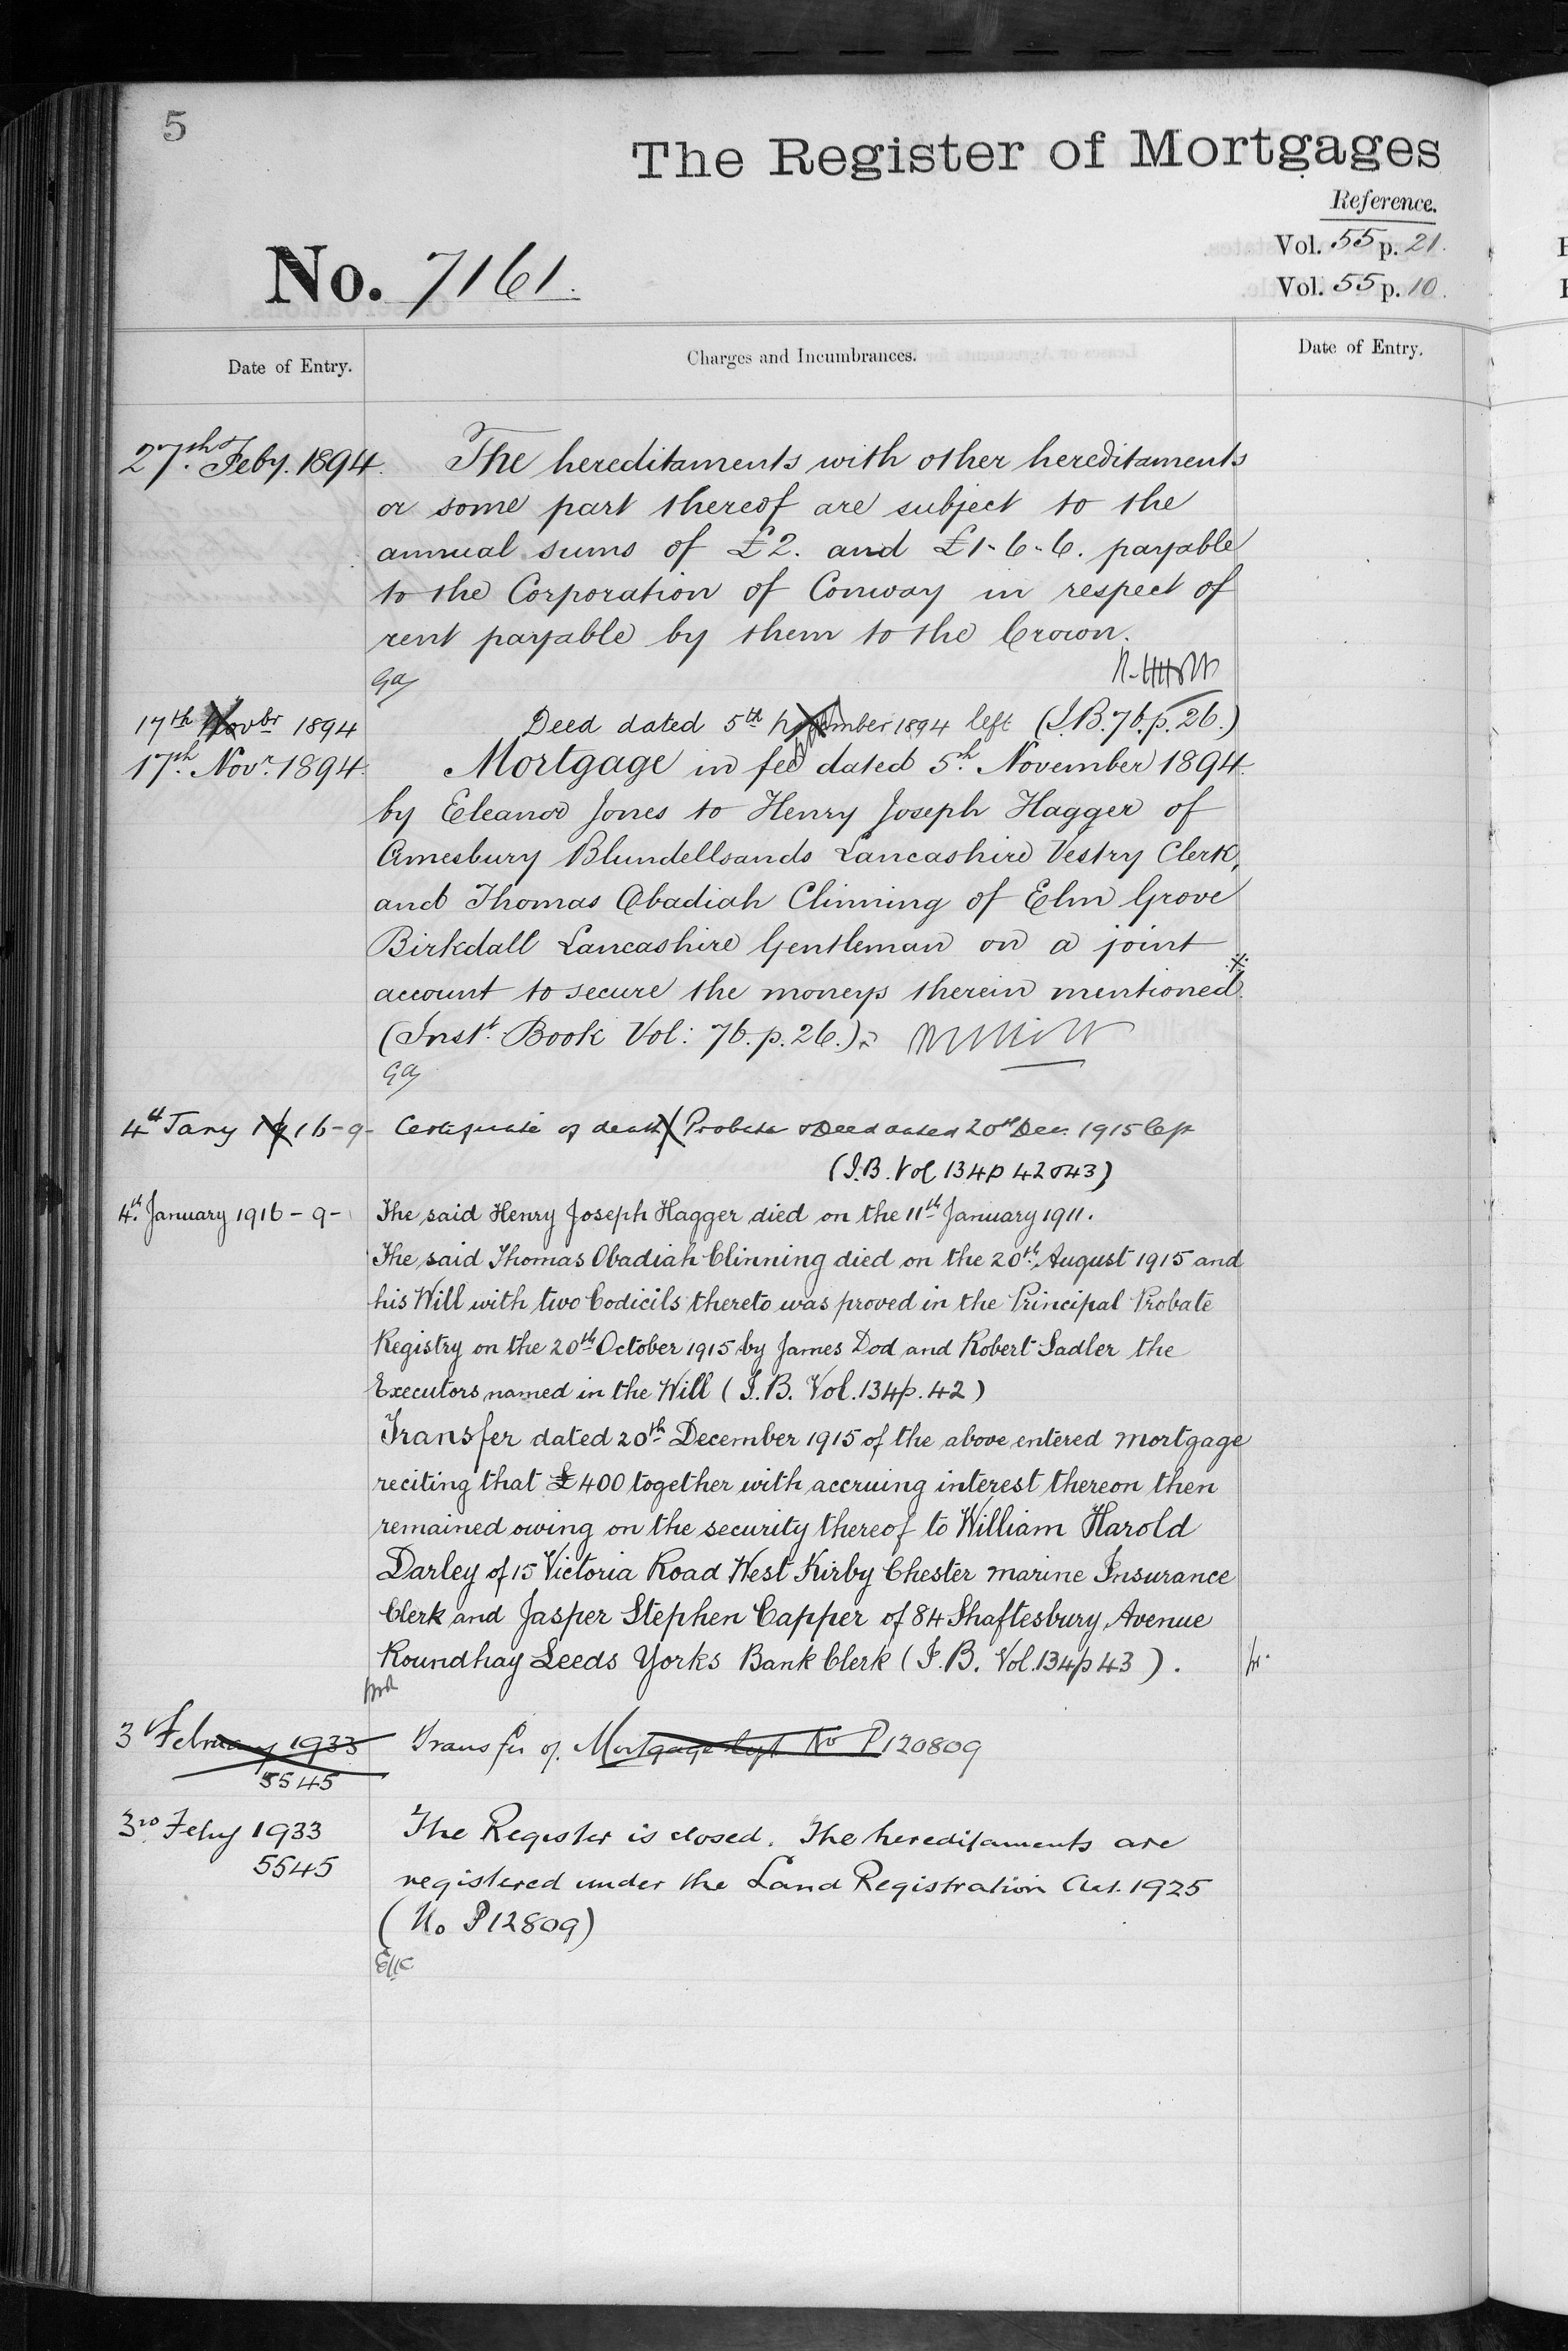 5
The Register of Mortgages
Reference.
Vol. 55 p. 21.
No. 7161.
Vol. 55 p. 10.
Date of Entry.
Charges and Incumbrances.
Date of Entry.
27th Feby. 1894. The hereditaments with other hereditaments
or some part thereof are subject to the
annual sums of £2. and £1-6-6. payable
to the Corporation of Conway in respect of
rent payable by them to the Crown.
17th Novbr 1894 Deed dated 5th November 1894 left (I.B. 76. p. 26.)
17th Novr. 1894. Mortgage in fee dated 5th November 1894.
by Eleanor Jones to Henry Joseph Hagger of
Amesbury Blundellsands Lancashire Vestry Clerk,
and Thomas Obadiah Clinning of Elm Grove
Birkdall Lancashire Gentleman on a joint
account to secure the moneys therein mentioned.
(Inst. Book Vol: 76. p. 26.)
4th Jany 1916-9- Certificate of death Probate & Deed dated 20th Dec. 1915 left
(I.B. Vol 134 p 42 & 43)
4th January 1916-9- The said Henry Joseph Hagger died on the 11th January 1911.
The said Thomas Obadiah Clinning died on the 20th August 1915 and
his Will with two Codicils thereto was proved in the Principal Probate
Registry on the 20th October 1915 by James Dod and Robert Sadler the
Executors named in the Will (I.B. Vol. 134 p. 42)
Transfer dated 20th December 1915 of the above entered mortgage
reciting that £400 together with accruing interest thereon then
remained owing on the security thereof to William Harold
Darley of 15 Victoria Road West Kirby Chester marine Insurance
Clerk and Jasper Stephen Capper of 84 Shaftesbury Avenue
Roundhay Leeds Yorks Bank Clerk (I.B. Vol. 134 p 43).
3rd February 1933 Transfer of Mortgage left No P120809
5545
3rd Feby 1933 The Register is closed. The hereditaments are
5545 registered under the Land Registration Act. 1925
(No P12809)